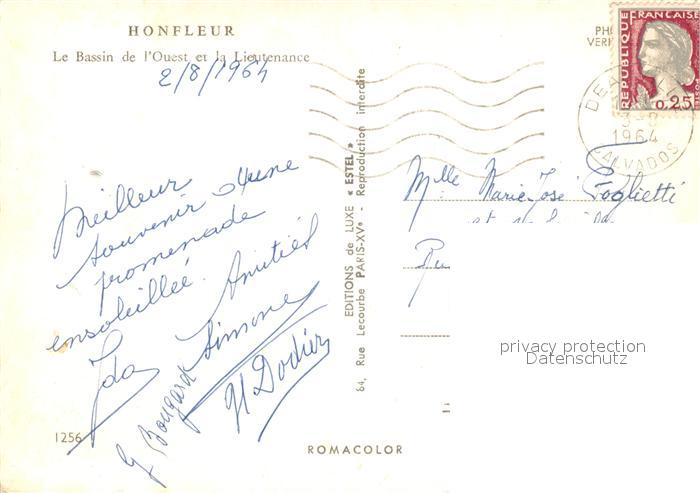 HONFLEUR
Le Bassin de l'Ouest et la Lieutenance
2/8/1964
Meilleur
souvenir d'une
promenade
ensoleillée. Amitiés
Ida Simone
G Bougard H Dodier
1256
EDITIONS de LUXE « ESTEL »
64, Rue Lecourbe PARIS-XVe - Reproduction interdite
ROMACOLOR
PH
VERI
REPUBLIQUE FRANÇAISE
0,25
1964
CALVADOS
Mlle Marie-José Poglietti
Ru
privacy protection
Datenschutz